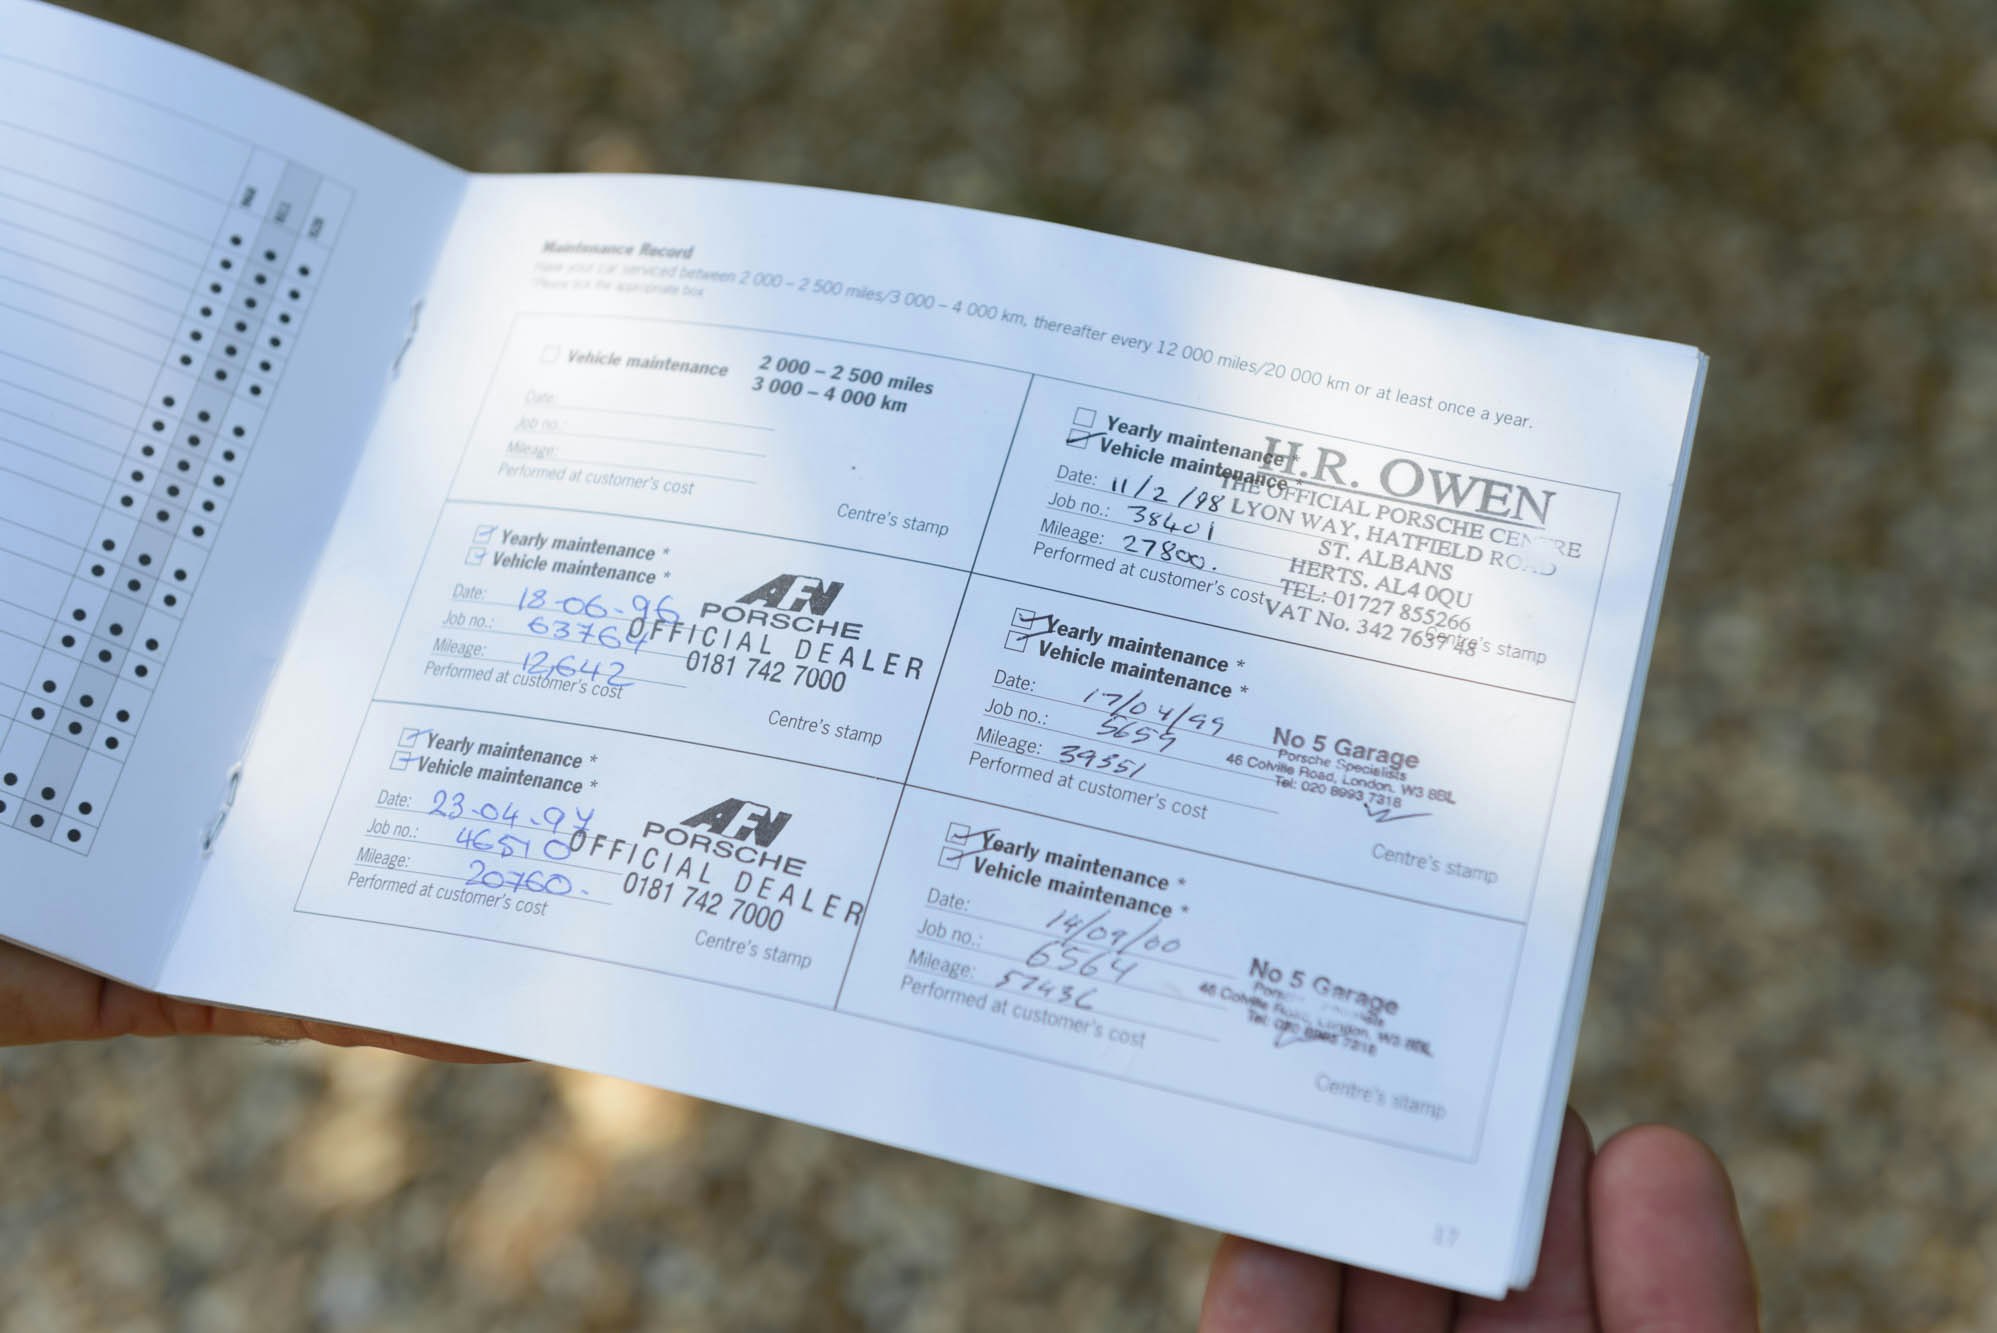 Maintenance Record
Have your car serviced between 2 000 – 2 500 miles/3 000 – 4 000 km, thereafter every 12 000 miles/20 000 km or at least once a year.
*Please tick the appropriate box
Vehicle maintenance 2 000 – 2 500 miles
3 000 – 4 000 km
Date:
Job no.:
Mileage:
Performed at customer's cost
Centre's stamp
Yearly maintenance *
Vehicle maintenance *
Date: 18-06-96
Job no.: 63764
Mileage: 12,642
Performed at customer's cost
AFN
PORSCHE
OFFICIAL DEALER
0181 742 7000
Centre's stamp
Yearly maintenance *
Vehicle maintenance *
Date: 23-04-97
Job no.: 46510
Mileage: 20760.
Performed at customer's cost
AFN
PORSCHE
OFFICIAL DEALER
0181 742 7000
Centre's stamp
Yearly maintenance *
Vehicle maintenance *
Date: 11/2/98
Job no.: 38401
Mileage: 27800.
Performed at customer's cost
H.R. OWEN
THE OFFICIAL PORSCHE CENTRE
LYON WAY, HATFIELD ROAD
ST. ALBANS
HERTS. AL4 0QU
TEL: 01727 855266
VAT No. 342 7637 48
Centre's stamp
Yearly maintenance *
Vehicle maintenance *
Date: 17/04/99
Job no.: 5659
Mileage: 39351
Performed at customer's cost
No 5 Garage
Porsche Specialists
46 Colville Road, London. W3 8BL
Tel: 020 8993 7318
Centre's stamp
Yearly maintenance *
Vehicle maintenance *
Date: 14/09/00
Job no.: 6564
Mileage: 57436
Performed at customer's cost
No 5 Garage
46 Colville Road, London. W3 8BL
Tel: 020 8993 7318
Centre's stamp
17